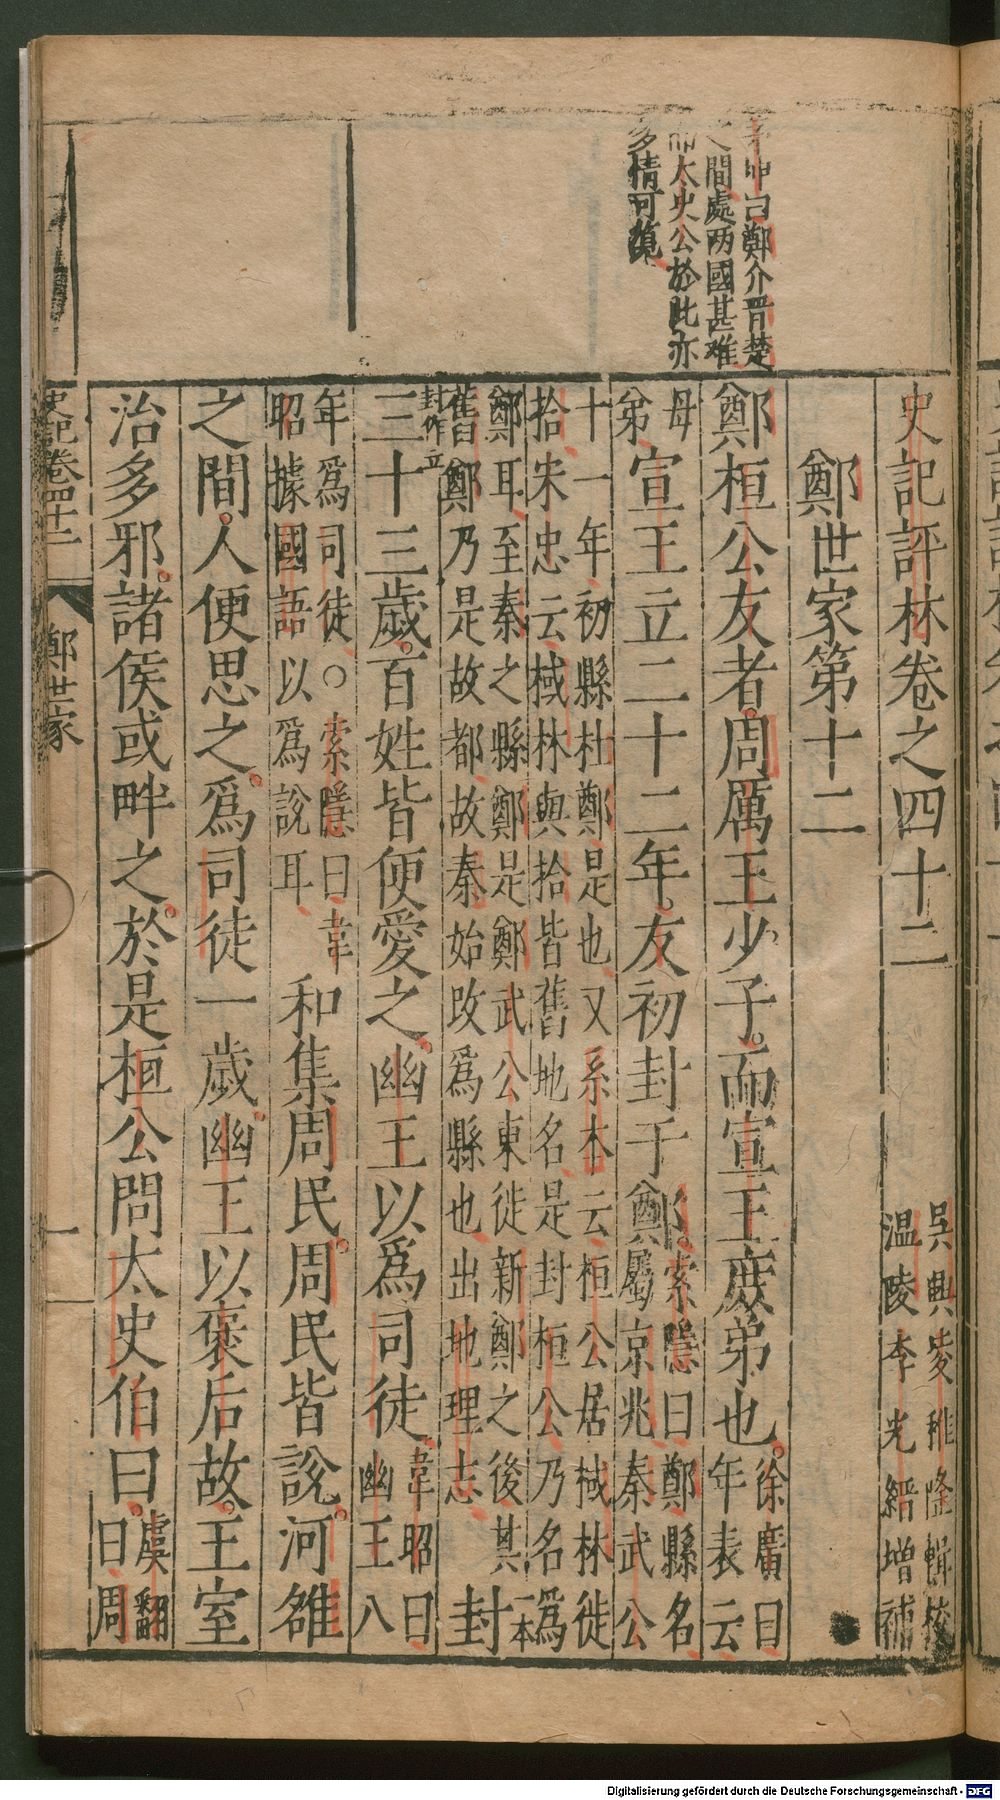 茅坤曰鄭介晋楚
之間處两國甚难
而太史公於此亦
多情可覽
史記評林卷之四十二
吳興凌稚隆輯校
温陵李光縉增補
鄭世家第十二
鄭桓公友者周厲王少子而宣王庻弟也徐廣曰年表云
母弟宣王立二十二年友初封于鄭索隱曰鄭縣名屬京兆秦武公
十一年初縣杜鄭是也又系本云桓公居棫林徙
拾宋忠云棫林與拾皆舊地名是封桓公乃名為
鄭耳至秦之縣鄭是鄭武公東徙新鄭之後其
舊鄭乃是故都故秦始改為縣也出地理志封一本
封作立
三十三歲百姓皆便愛之幽王以為司徒韋昭曰幽王八
年為司徒○索隱曰韋昭據國語以為說耳和集周民周民皆說河雒
之間人便思之為司徒一歲幽王以褒后故王室
治多邪諸侯或畔之於是桓公問太史伯曰虞翻曰周
史記卷四十二 鄭世家 一
Digitalisierung gefördert durch die Deutsche Forschungsgemeinschaft - DFG